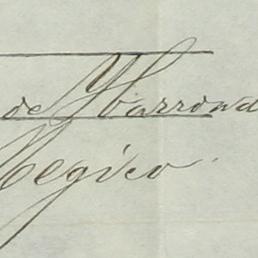 de Ybarrond
Megico